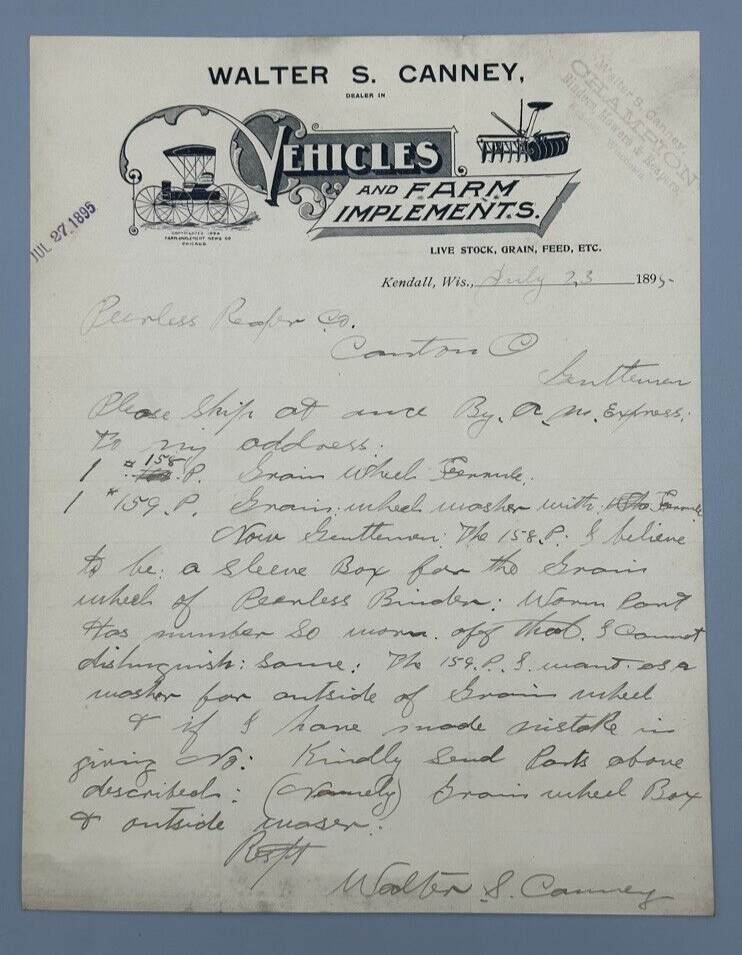 WALTER S. CANNEY,
DEALER IN
VEHICLES
AND FARM
IMPLEMENTS.
COPYRIGHTED 1894
FARM IMPLEMENT NEWS CO
CHICAGO
LIVE STOCK, GRAIN, FEED, ETC.
Walter S. Canney,
CHAMPION
Binders, Mowers & Reapers,
Wisconsin
JUL 27 1895
Kendall, Wis., July 23 1895-
Peerless Reaper Co.
Canton O
Gentlemen
Please Ship at once By. A. M. Express.
to my address:
1 # 158 P. Grain wheel Ferrule.
1 # 159. P. Grain wheel washer with Ferrule
Now Gentlemen: The 158. P. I believe
to be: a Sleeve Box for the Grain
wheel of Peerless Binder: Worn Part
Has number So worn. off that. I Cannot
distinguish: Same: The 159. P. I. want as a
washer for outside of Grain wheel
& if I have made mistake in
giving No: Kindly Send Parts above
described: (Namely) Grain wheel Box
& outside waser.
Respt
Walter S. Canney